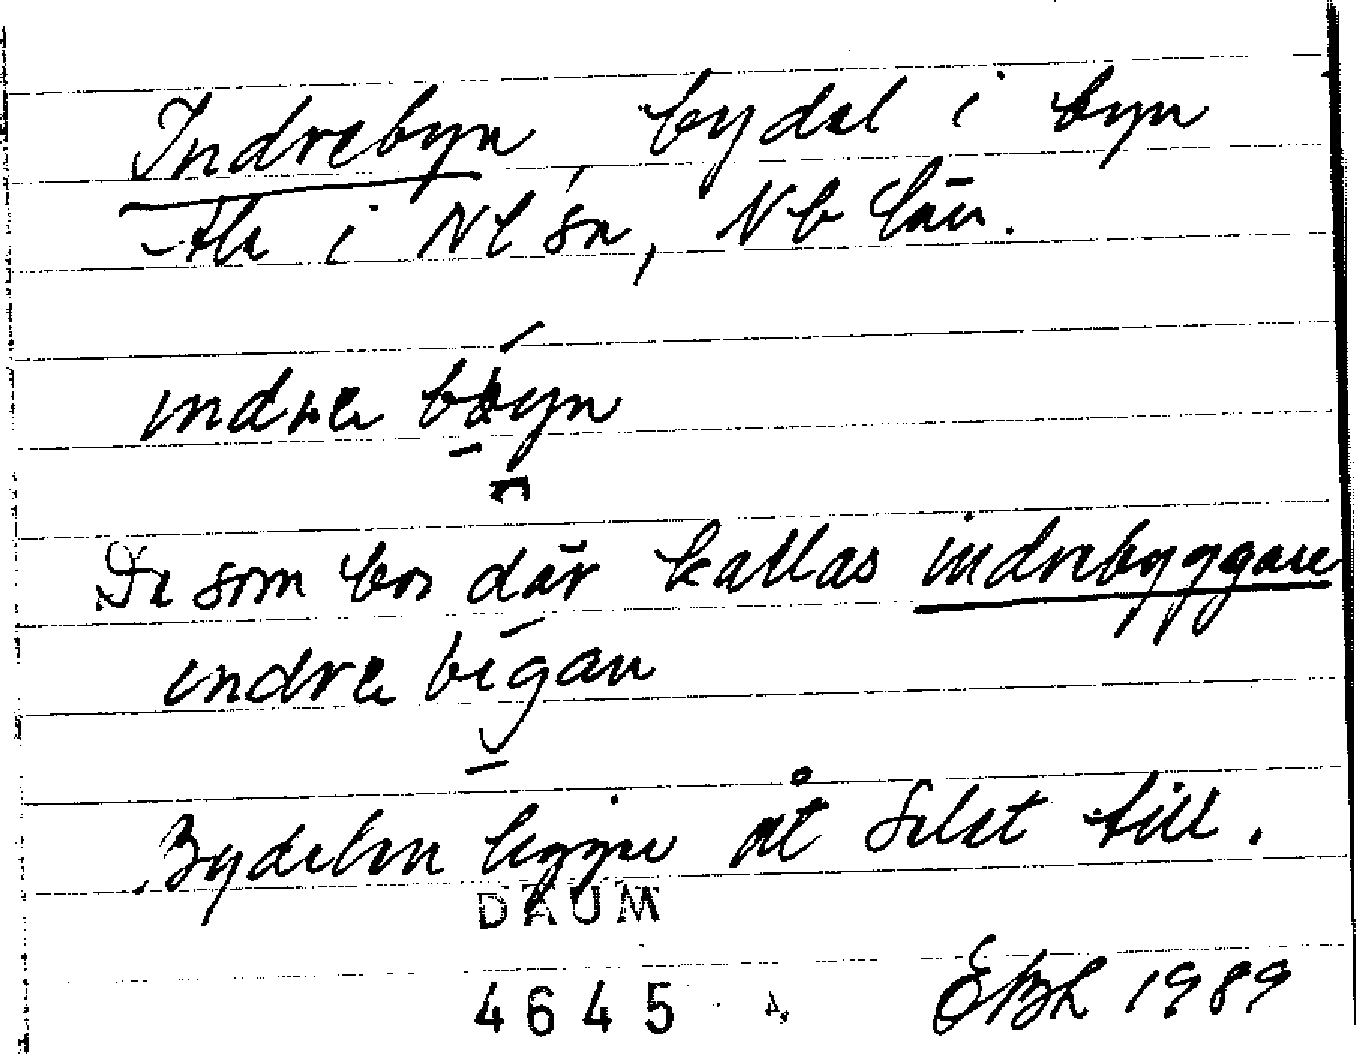 Indrebyn, bydel i byn
i Nl sn, Nb län.
indre
De som bor där kallas indrebyggare
indre bigan
Bydelen ligger åt Selet till.
DAUM
4645 EBL 1989